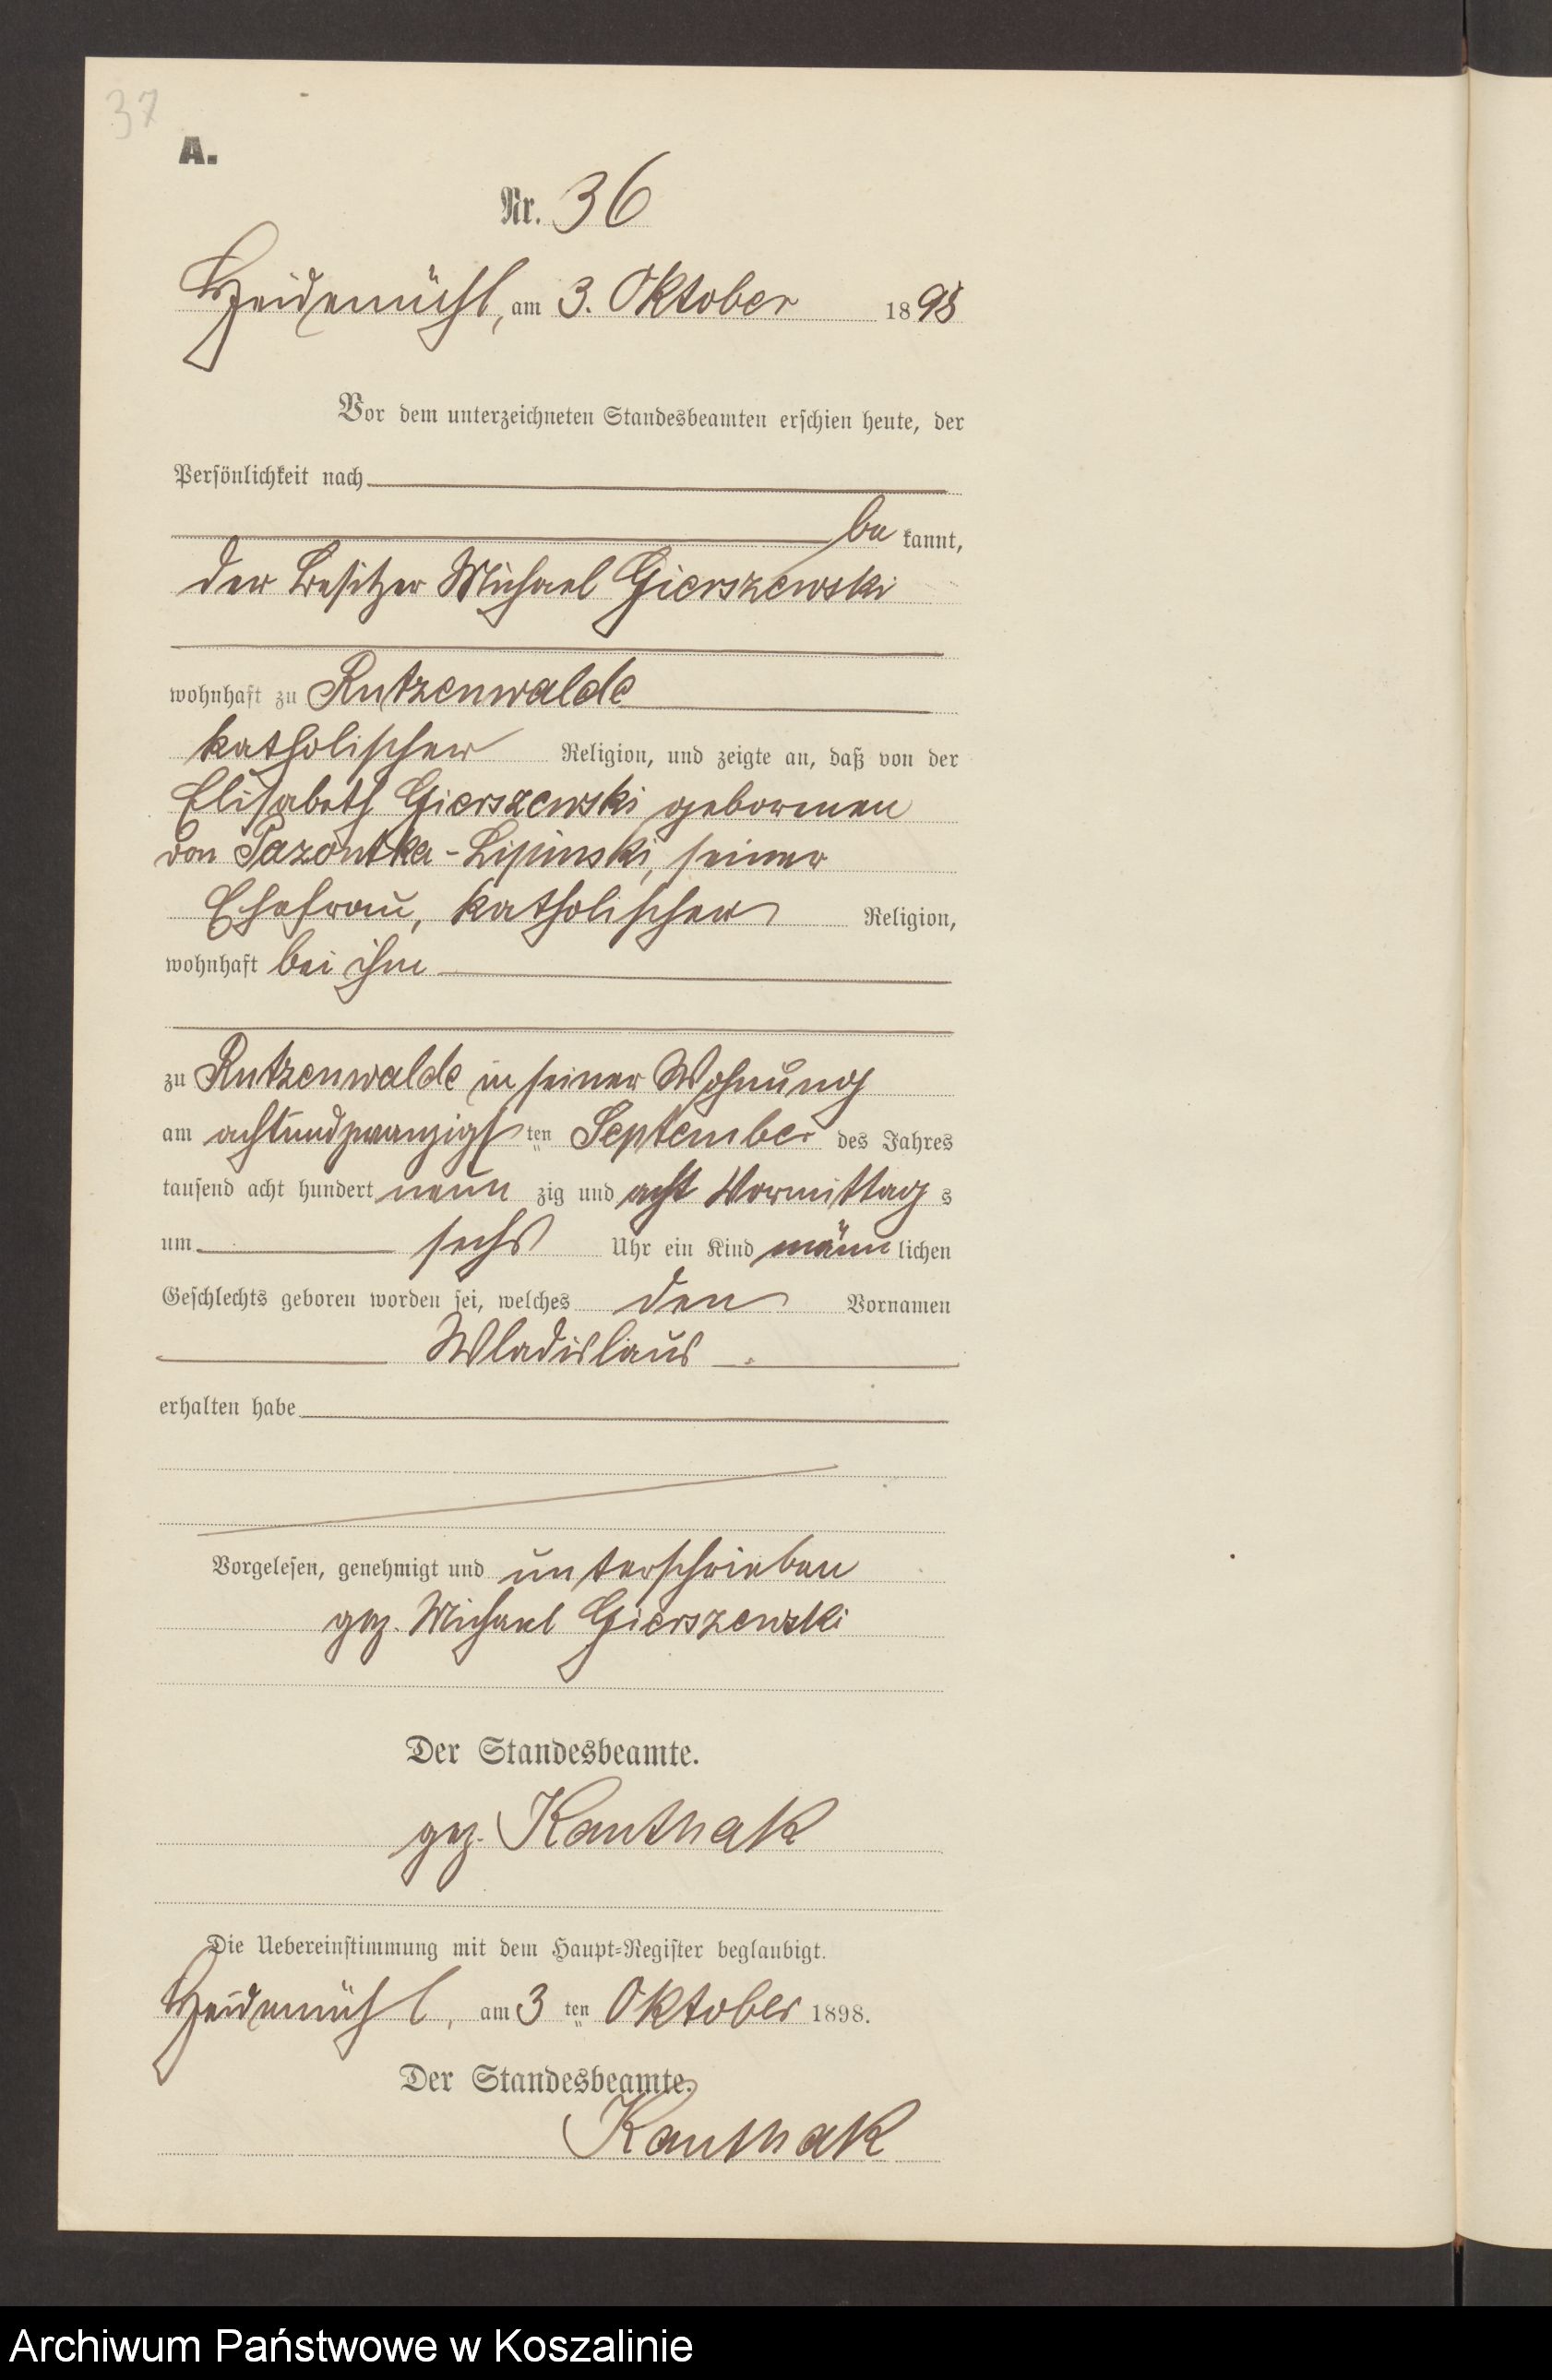 37
A.
Nr. 36
Heidemühl, am 3. Oktober 1898
Vor dem unterzeichneten Standesbeamten erschien heute, der
Persönlichkeit nach
be kannt,
der Besitzer Michael Gierszewski
wohnhaft zu Rutzenwalde
katholischer Religion, und zeigte an, daß von der
Elisabeth Gierszewski geborenen
von Pazontka-Lipinski, seiner
Ehefrau, katholischer Religion,
wohnhaft bei ihm
zu Rutzenwalde in seiner Wohnung
am achtundzwanzigsten September des Jahres
tausend acht hundert neun zig und acht Vormittag s
um sechs Uhr ein Kind männ lichen
Geschlechts geboren worden sei, welches den Vornamen
Wladislaus
erhalten habe
Vorgelesen, genehmigt und unterschrieben
gez. Michael Gierszewski
Der Standesbeamte.
gez. Kanthak
Die Uebereinstimmung mit dem Haupt=Register beglaubigt.
Heidemühl, am 3 ten Oktober 1898.
Der Standesbeamte.
Kanthak
Archiwum Państwowe w Koszalinie